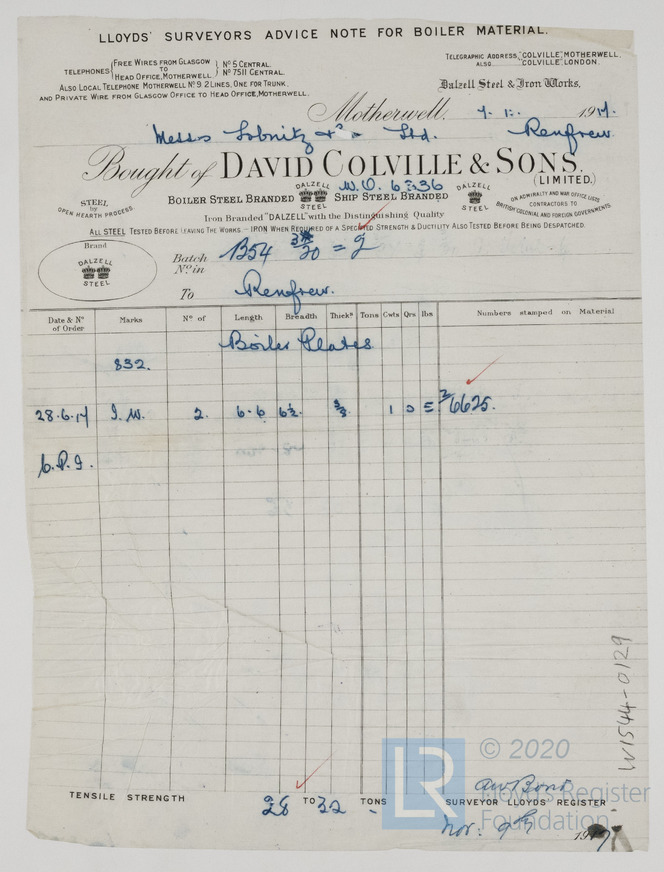 LLOYDS' SURVEYORS ADVICE NOTE FOR BOILER MATERIAL.
TELEPHONES { FREE WIRES FROM GLASGOW TO HEAD OFFICE, MOTHERWELL } Nº 5 CENTRAL. Nº 7511 CENTRAL.
ALSO LOCAL TELEPHONE MOTHERWELL Nº 9. 2 LINES, ONE FOR TRUNK.
AND PRIVATE WIRE FROM GLASGOW OFFICE TO HEAD OFFICE, MOTHERWELL.
TELEGRAPHIC ADDRESS, "COLVILLE", MOTHERWELL.
ALSO "COLVILLE", LONDON.
Dalzell Steel & Iron Works,
Motherwell, 1917.
Messrs Lobnitz & Co Ltd. Renfrew.
Bought of DAVID COLVILLE & SONS,
(LIMITED.)
STEEL, by OPEN HEARTH PROCESS.
BOILER STEEL BRANDED DALZELL STEEL SHIP STEEL BRANDED DALZELL STEEL
W.O. 36
ON ADMIRALTY AND WAR OFFICE LISTS
CONTRACTORS TO
BRITISH, COLONIAL AND FOREIGN GOVERNMENTS.
Iron Branded "DALZELL" with the Distinguishing Quality
ALL STEEL TESTED BEFORE LEAVING THE WORKS. - IRON WHEN REQUIRED OF A SPECIFIED STRENGTH & DUCTILITY ALSO TESTED BEFORE BEING DESPATCHED.
Brand
DALZELL
STEEL
Batch Nº in B54 = 2
To Renfrew.
Date & Nº of Order Marks Nº of Length Breadth Thickˢ Tons Cwts Qrs lbs Numbers stamped on Material
Boiler Plates
832.
28.6.17 J.W. 2. 6.6 6½ 1 6625.
TENSILE STRENGTH 28 TO 32 TONS
SURVEYOR LLOYDS' REGISTER
Nov: 9th 1917
W1544-0129
LR © 2020
Lloyd's Register
Foundation